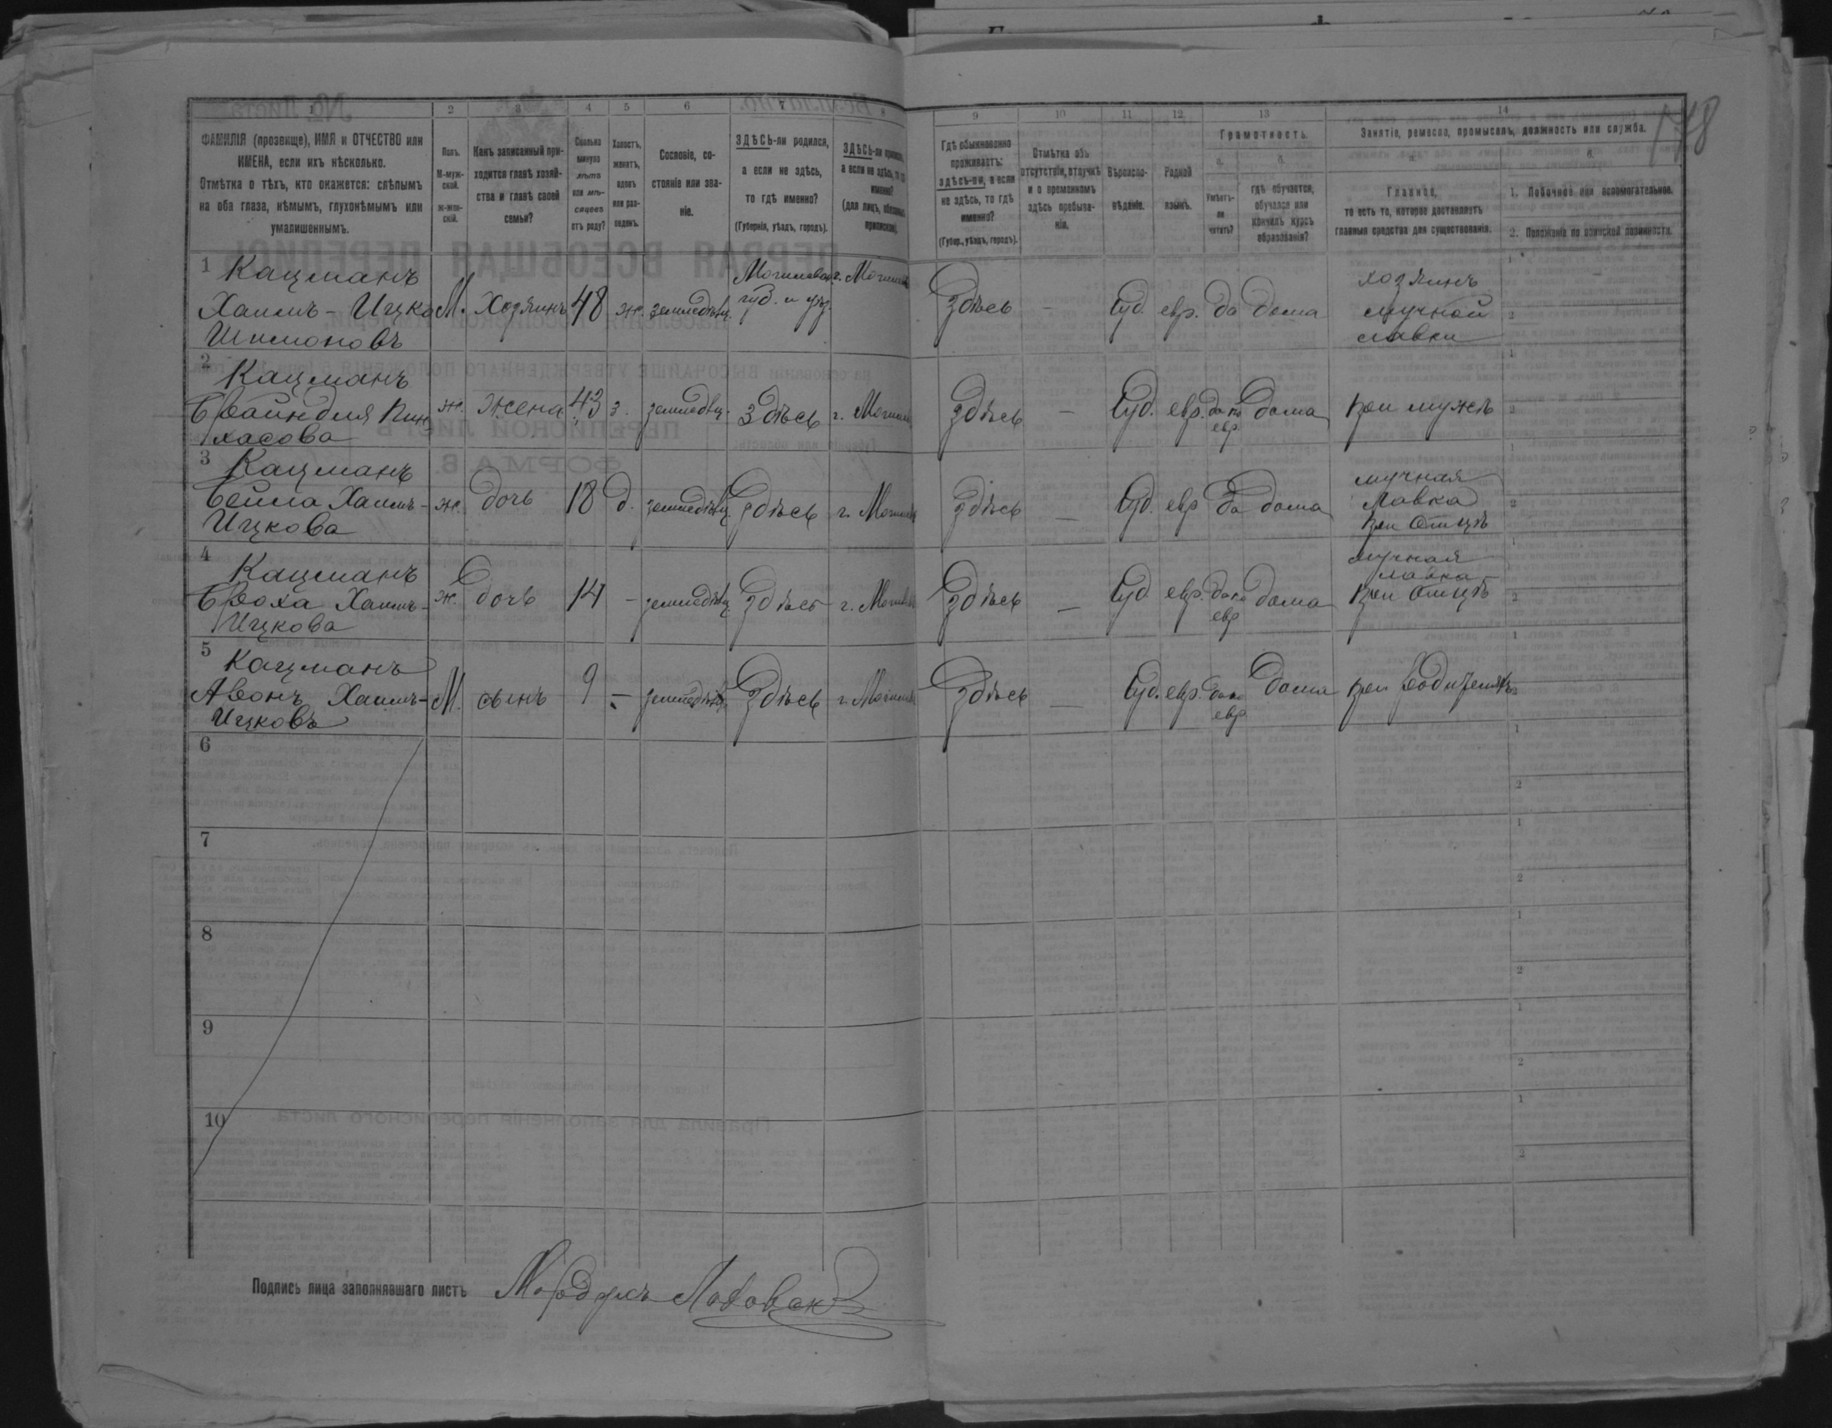 1 2 3 4 5 6 7 8
ФАМИЛІЯ (прозвище), ИМЯ и ОТЧЕСТВО или
ИМЕНА, если ихъ нѣсколько.
Отмѣтка о тѣхъ, кто окажется: слѣпымъ
на оба глаза, нѣмымъ, глухонѣмымъ или
умалишеннымъ.
Полъ.
М-муж-
ской.
ж-жен-
скій.
Какъ записанный при-
ходится главѣ хозяй-
ства и главѣ своей
семьи?
Сколько
минуло
лѣтъ
или мѣ-
сяцевъ
отъ роду?
Холостъ,
женатъ,
вдовъ
или раз-
веденъ.
Сословіе, со-
стояніе или зва-
ніе.
ЗДѢСЬ-ли родился,
а если не здѣсь,
то гдѣ именно?
(Губернія, уѣздъ, городъ).
ЗДѢСЬ-ли
а если не здѣсь, то гдѣ
именно?
(для лицъ,
1 Кацманъ
Хаимъ-Ицко
Шимоновъ
М. Хозяинъ 48 ж. земледѣлец.
губ. и уѣз.
2 Кацманъ
хасова
ж. жена 43 з. Здѣсь г.
3 Кацманъ
Бейла Хаимъ-
Ицкова
ж. дочь 18 д. Здѣсь г.
4 Кацманъ
Броха Хаимъ-
Ицкова
ж. дочь 14 - Здѣсь г.
5 Кацманъ
Авонъ Хаимъ-
Ицковъ
М. сынъ 9 - Здѣсь г.
6
7
8
9
10
Подпись лица заполнявшаго листъ
9 10 11 12 13 14
178
Гдѣ обыкновенно
проживаетъ:
здѣсь-ли, а если
не здѣсь, то гдѣ
именно?
(Губер., уѣздъ, городъ).
Отмѣтка объ
отсутствіи, отлучкѣ
и о временномъ
здѣсь пребыва-
ніи.
Вѣроиспо-
вѣданіе.
Родной
языкъ.
Грамотность.
а.
Умѣетъ-
ли
читать?
б.
гдѣ обучается,
обучался или
кончилъ курсъ
образованія?
Занятіе, ремесло, промыселъ, должность или служба.
а.
Главное,
то есть то, которое доставляетъ
главныя средства для существованія.
б.
1. Побочное или вспомогательное.
2. Положеніе по воинской повинности.
Здѣсь - Іуд. евр. да дома
хозяинъ
мучной
лавки
Здѣсь - Іуд. евр. да по
евр
дома при мужѣ
Здѣсь - Іуд. евр да дома
мучная
лавка
при отцѣ
Здѣсь - Іуд. евр. да по
евр
дома
мучная
лавка
при отцѣ
Здѣсь - Іуд. евр. да по
евр.
дома при родителяхъ